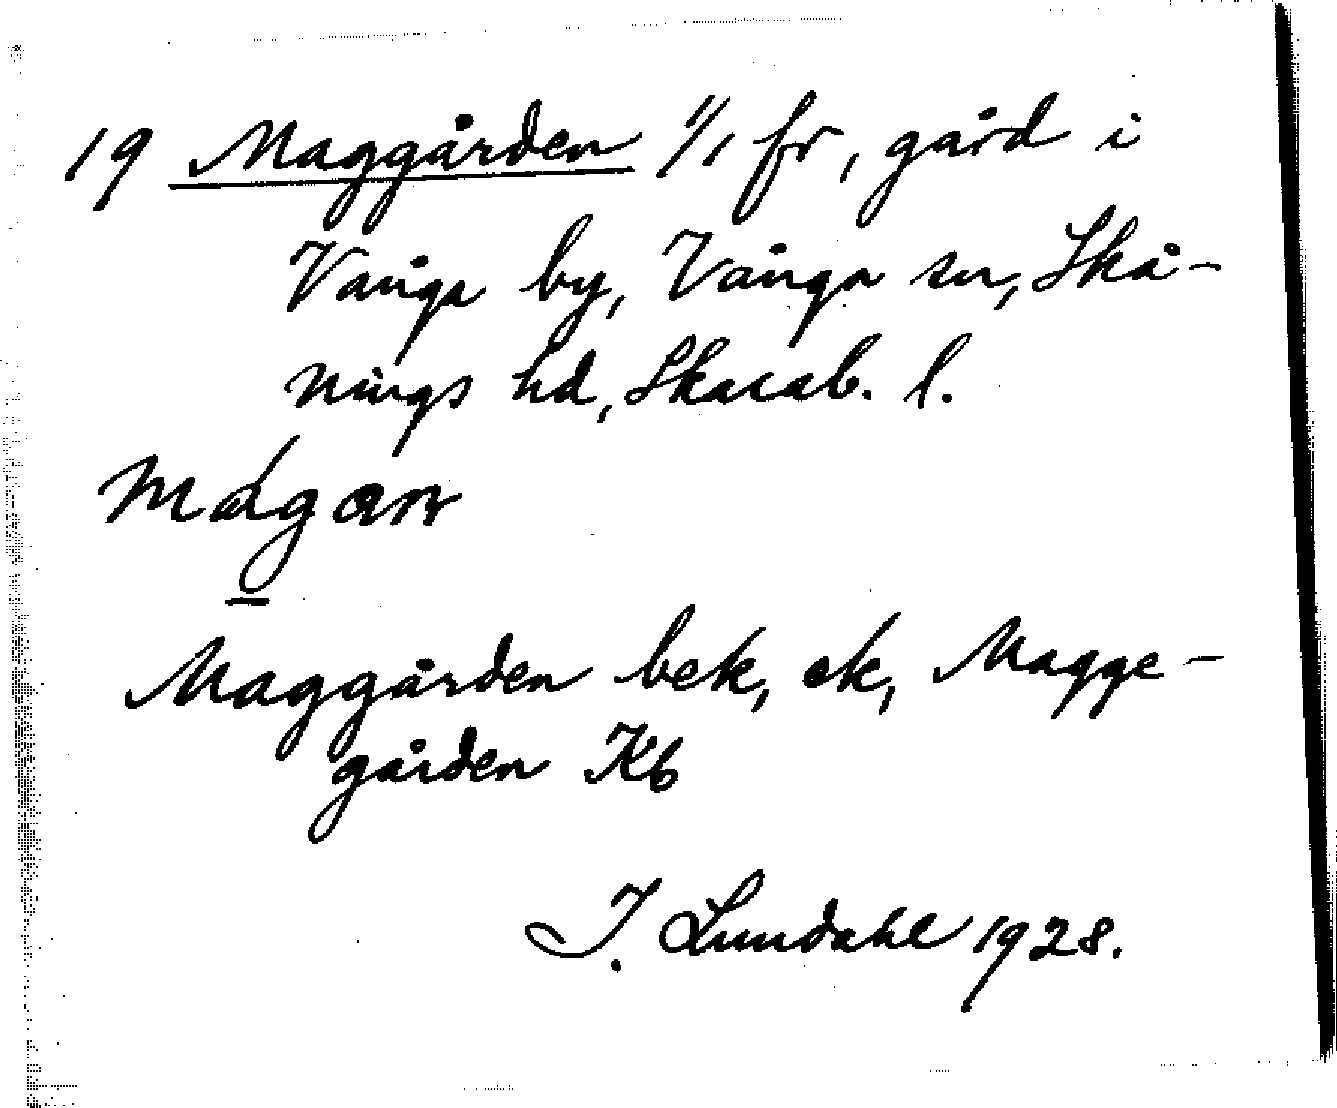 19 Maggården 1/1 fr, gård i
Vånga by, Vånga sn, Skå-
nings hd, Skarab. l.
Maggården bek, ek, Magge-
gården Kb
I. Lundahl 1928.